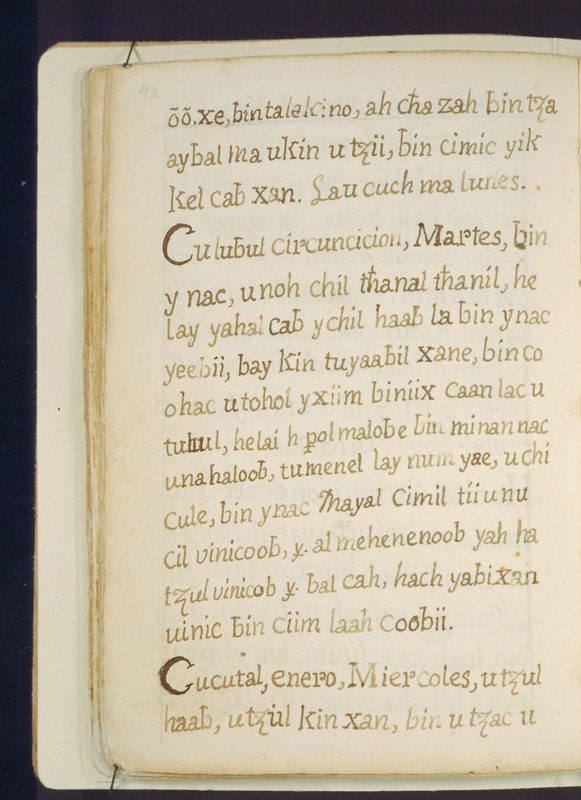 42
õõ.xe, ƀintalekino, ah cħa zah ƀin tȥa
ayƀal ma ukin u tȥii, ƀin cimic yik
kel caƀ xan. Lau cuch ma lunes.
Culuƀul circuncicion, Martes, ƀin
y nac, u noh chil tħanal tħanil, he
lay yahal caƀ ychil haaƀ la ƀin ynac
yeebii, bay kin tuyaaƀil xane, bin co
ohac u tohol yxiim biniix caan lac u
tuhul, helai h polmaloƀe ƀin minannac
unahalooƀ, tumenel lay num yae, u chi
cule, bin ynac Mayal cimil tii u nu
cil vinicooƀ, y. al mehenenooƀ yah ha
tȥul vinicob y. ƀal cah, hach yabixan
uinic ƀin ciim laah cooƀii.
Cucutal, enero, Miercoles, u tȥul
haaƀ, utȥul kin xan, bin u tȥac u